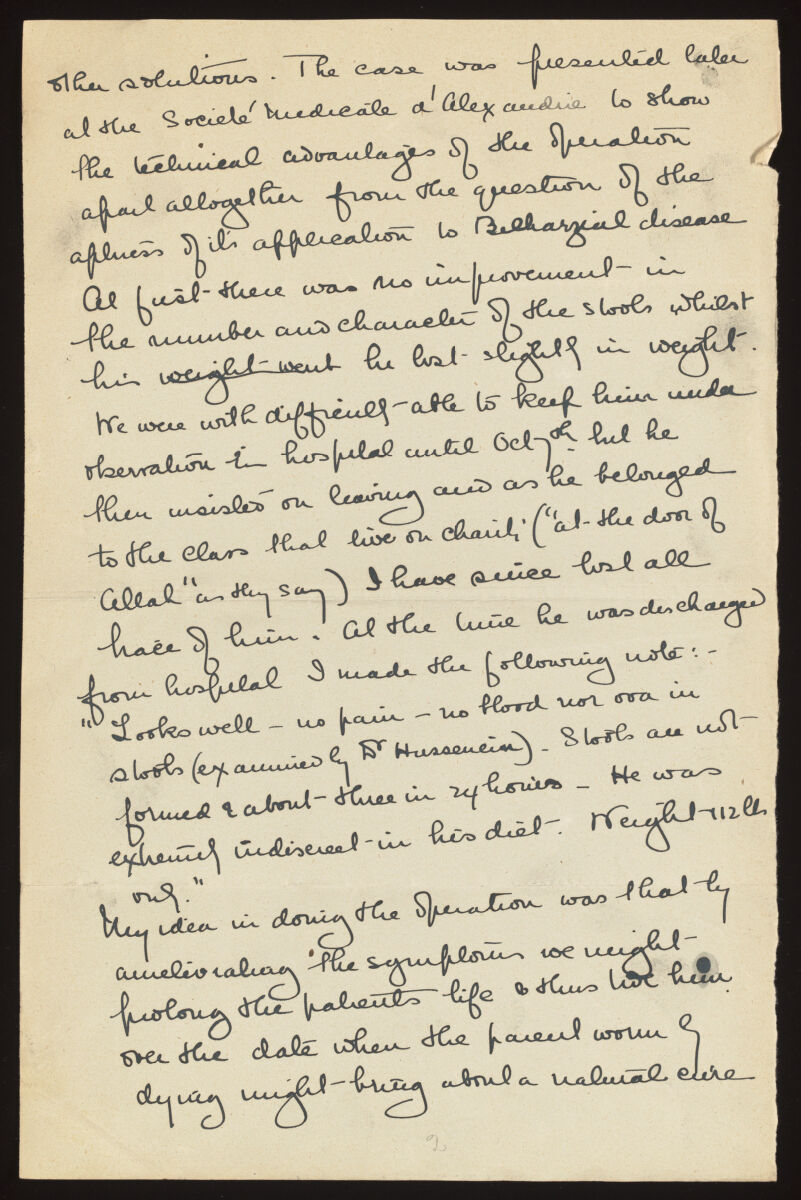 other solutions. The case was presented later
at the Societé Medicale d'Alexandrie to show
the technical advantages of the operation
apart altogether from the question of the
aptness of its application to Bilharzial disease
At first there was no improvement in
the number and character of the stools whilst
his weight went he lost slightly in weight.
We were with difficulty able to keep him under
observation in hospital until Oct 7th. but he
then insisted on leaving and as he belonged
to the class that live on charity ("at the door of
Allah" as they say) I have since lost all
trace of him. At the time he was discharged
from hospital I made the following note:-
"Looks well - no pain - no blood nor ova in
stools (examined by Dr Hussenein). Stools are not
formed & about three in 24 hours - He was
extremely indiscreet in his diet. Weight 112 lbs
only."
My idea in doing the operation was that by
ameliorating the symptoms we might
prolong the patients life & thus tide him
over the date when the parent worm by
dying might bring about a natural cure
2